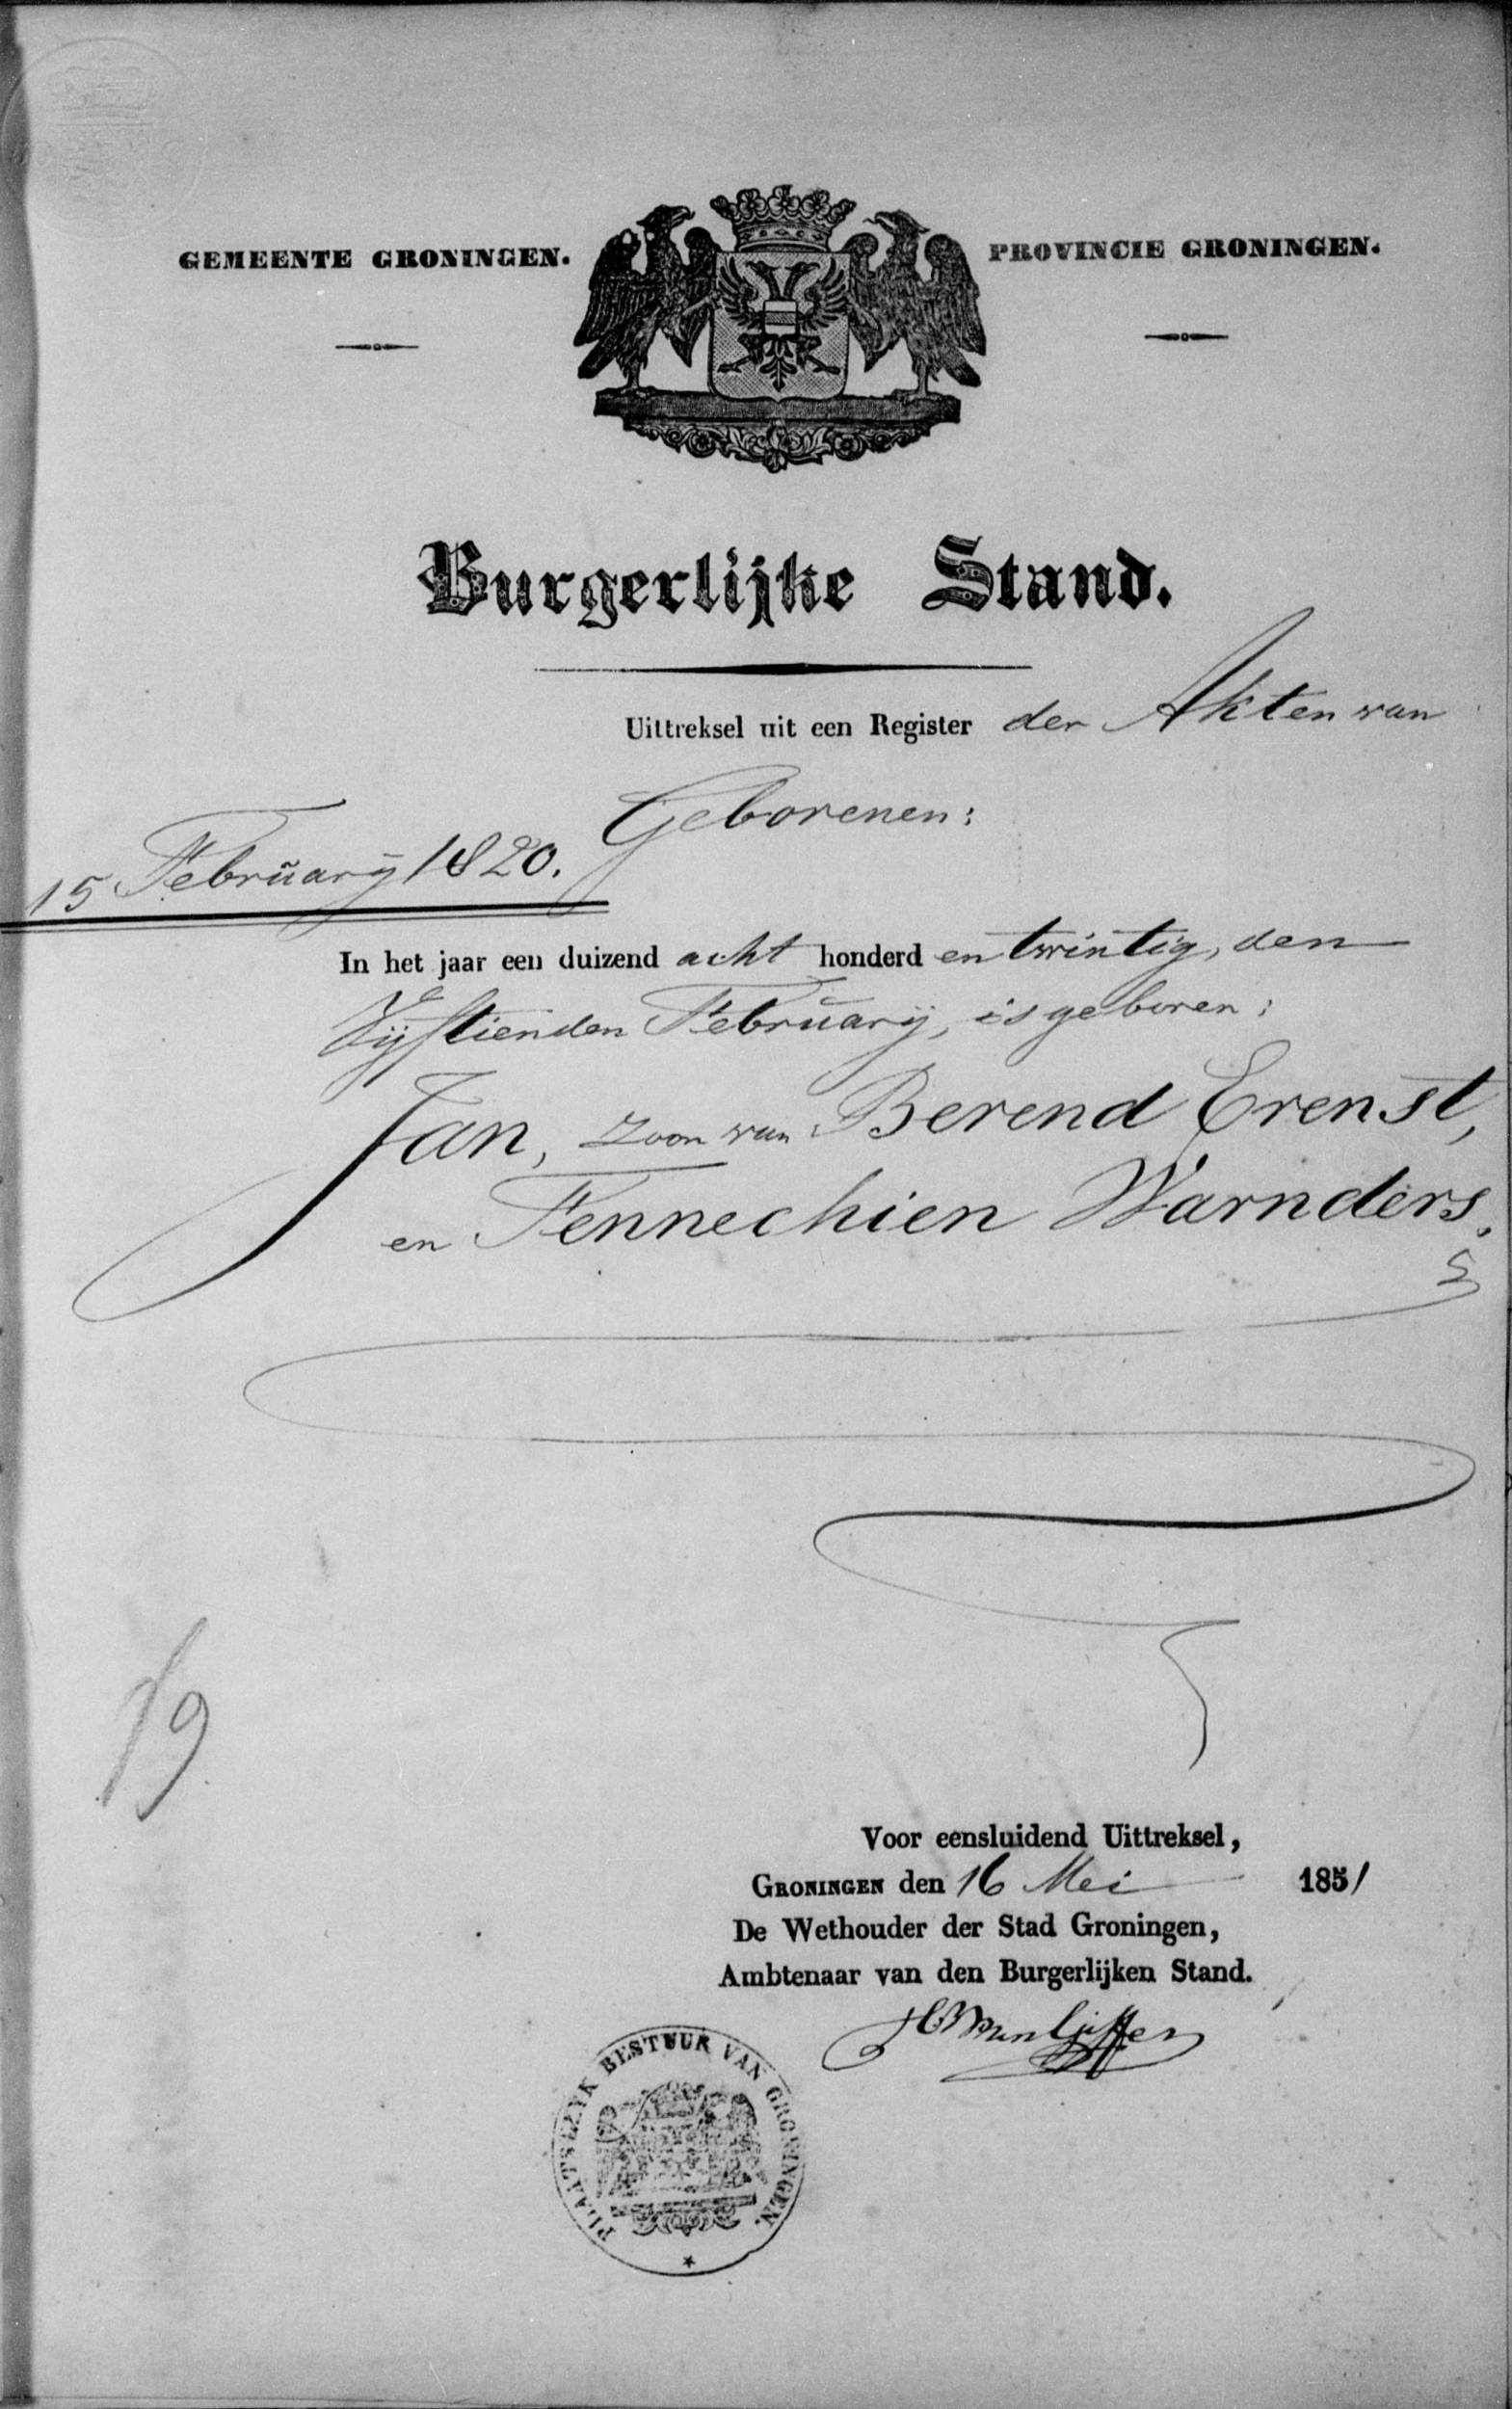 GEMEENTE GRONINGEN.
PROVINCIE GRONINGEN.
Burgerlijke Stand.
Uittreksel uit een Register der Akten van
Geborenen:
15 Februarij 1820.
In het jaar een duizend acht honderd en twintig, den
Vijftienden Februarij, is geboren:
Jan, zoon van Berend Erenst,
en Fennechien Warnders.
19
Voor eensluidend Uittreksel,
GRONINGEN den 16 Mei 1851
De Wethouder der Stad Groningen,
Ambtenaar van den Burgerlijken Stand.
PLAATSELYK BESTUUR VAN GRONINGEN.